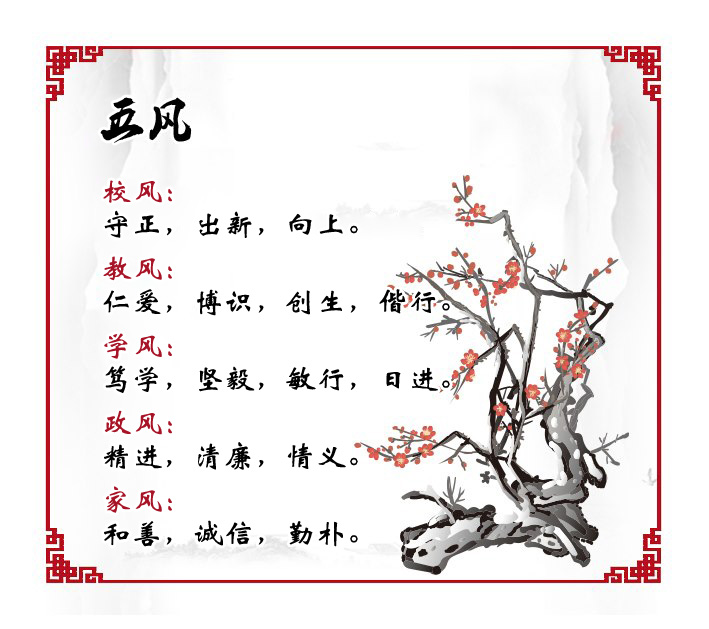 五风
校风：
守正，出新，向上。
教风：
仁爱，博识，创生，偕行。
学风：
笃学，坚毅，敏行，日进。
政风：
精进，清廉，情义。
家风：
和善，诚信，勤朴。